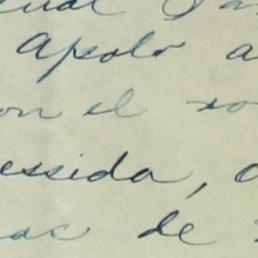 Apolo a
on el so
essida,
ac de